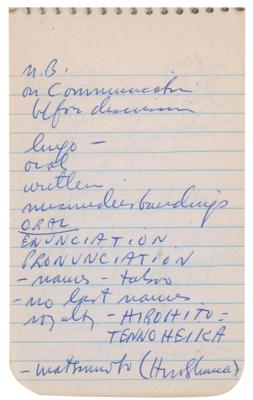 N.B.
on Communication
before discussion
lings –
oral
written
misunderstandings
ORAL
ENUNCIATION
PRONUNCIATION
- names - taboo
- no last names
royalty - HIROHITO =
TENNO HEIKA
- Matsumoto (Hiroshima)